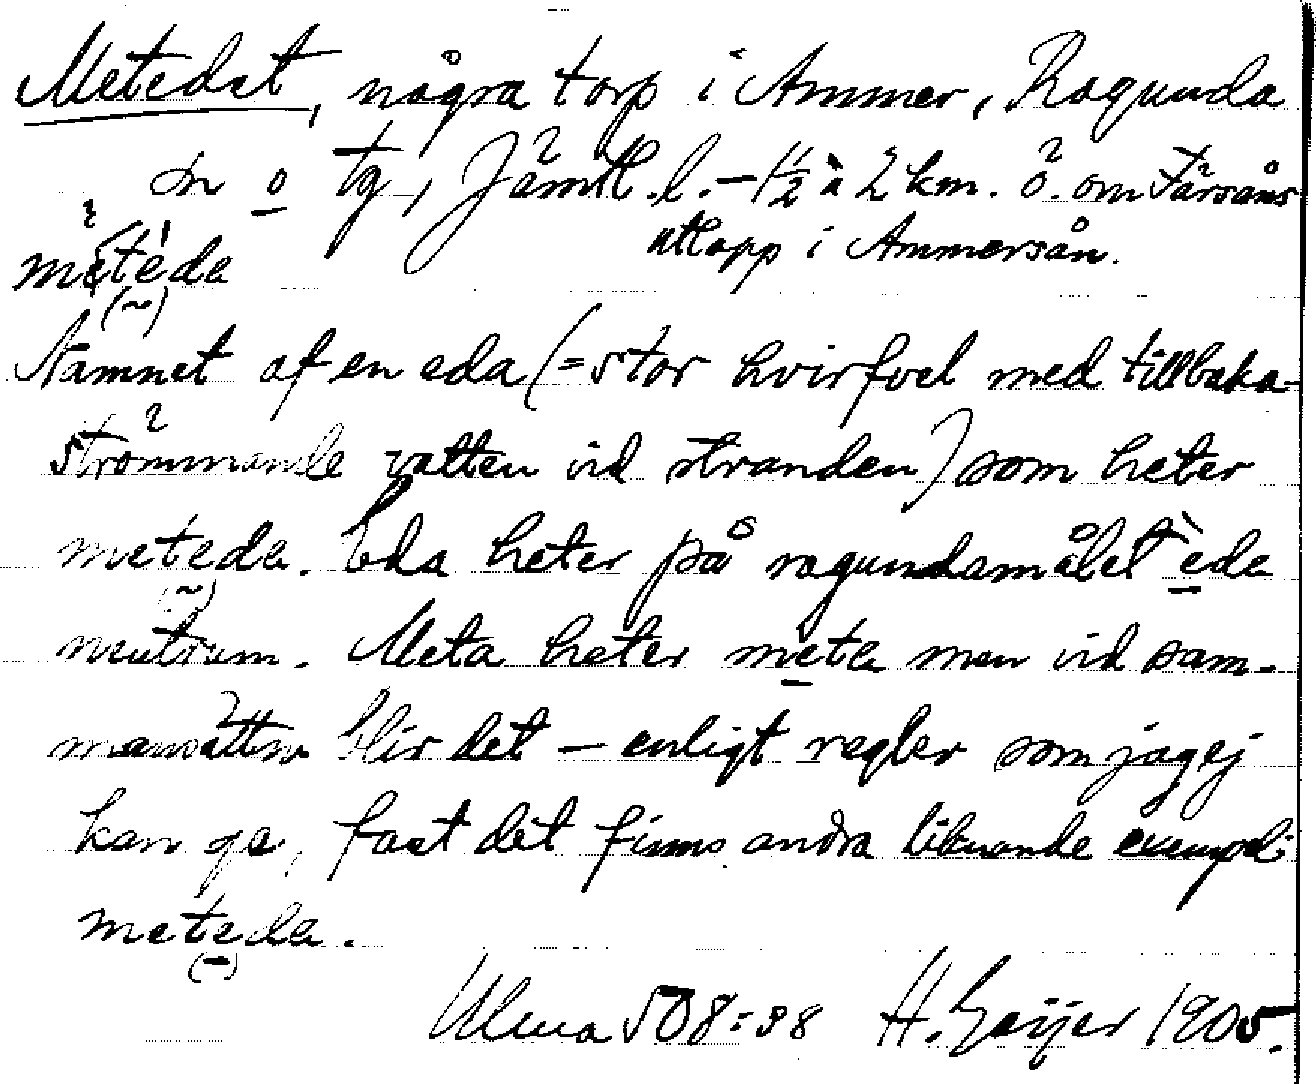 Metedat, några torp i Ammer, Ragunda
sn o tg, Jämtl. l. – 1½ à 2 km. ö. om Färsåns
utlopp i Ammersån.
metede
(~)
Namnet af en eda (= stor hvirfvel med tillbaka-
strömmande vatten vid stranden) som heter
meteda. Eda heter på ragundamålet ede
(~)
neutrum. Meta heter meta men vid sam-
mansättn blir det – enligt regler som jag ej
kan ge, fast det finns andra liknande exempel:
meteda.
(–)
Ulma 508:98 H. Geijer 1905.